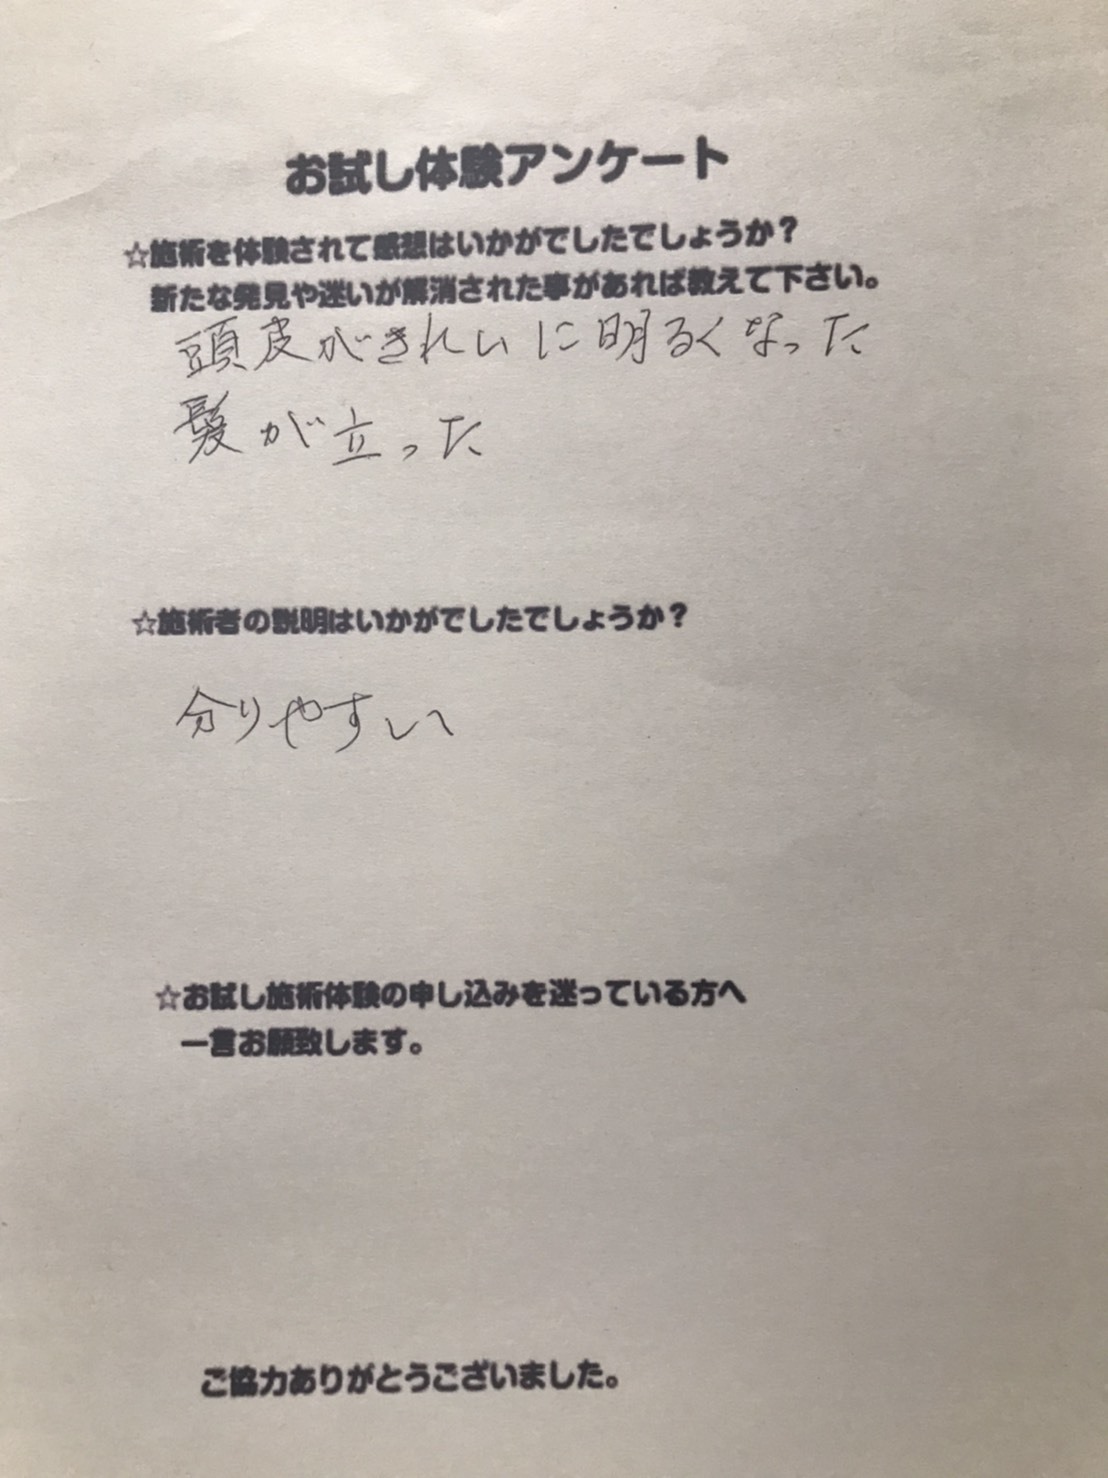 お試し体験アンケート
☆施術を体験されて感想はいかがでしたでしょうか？
新たな発見や迷いが解消された事があれば教えて下さい。
頭皮がきれいに明るくなった
髪が立った
☆施術者の説明はいかがでしたでしょうか？
分りやすい
☆お試し施術体験の申し込みを迷っている方へ
一言お願致します。
ご協力ありがとうございました。